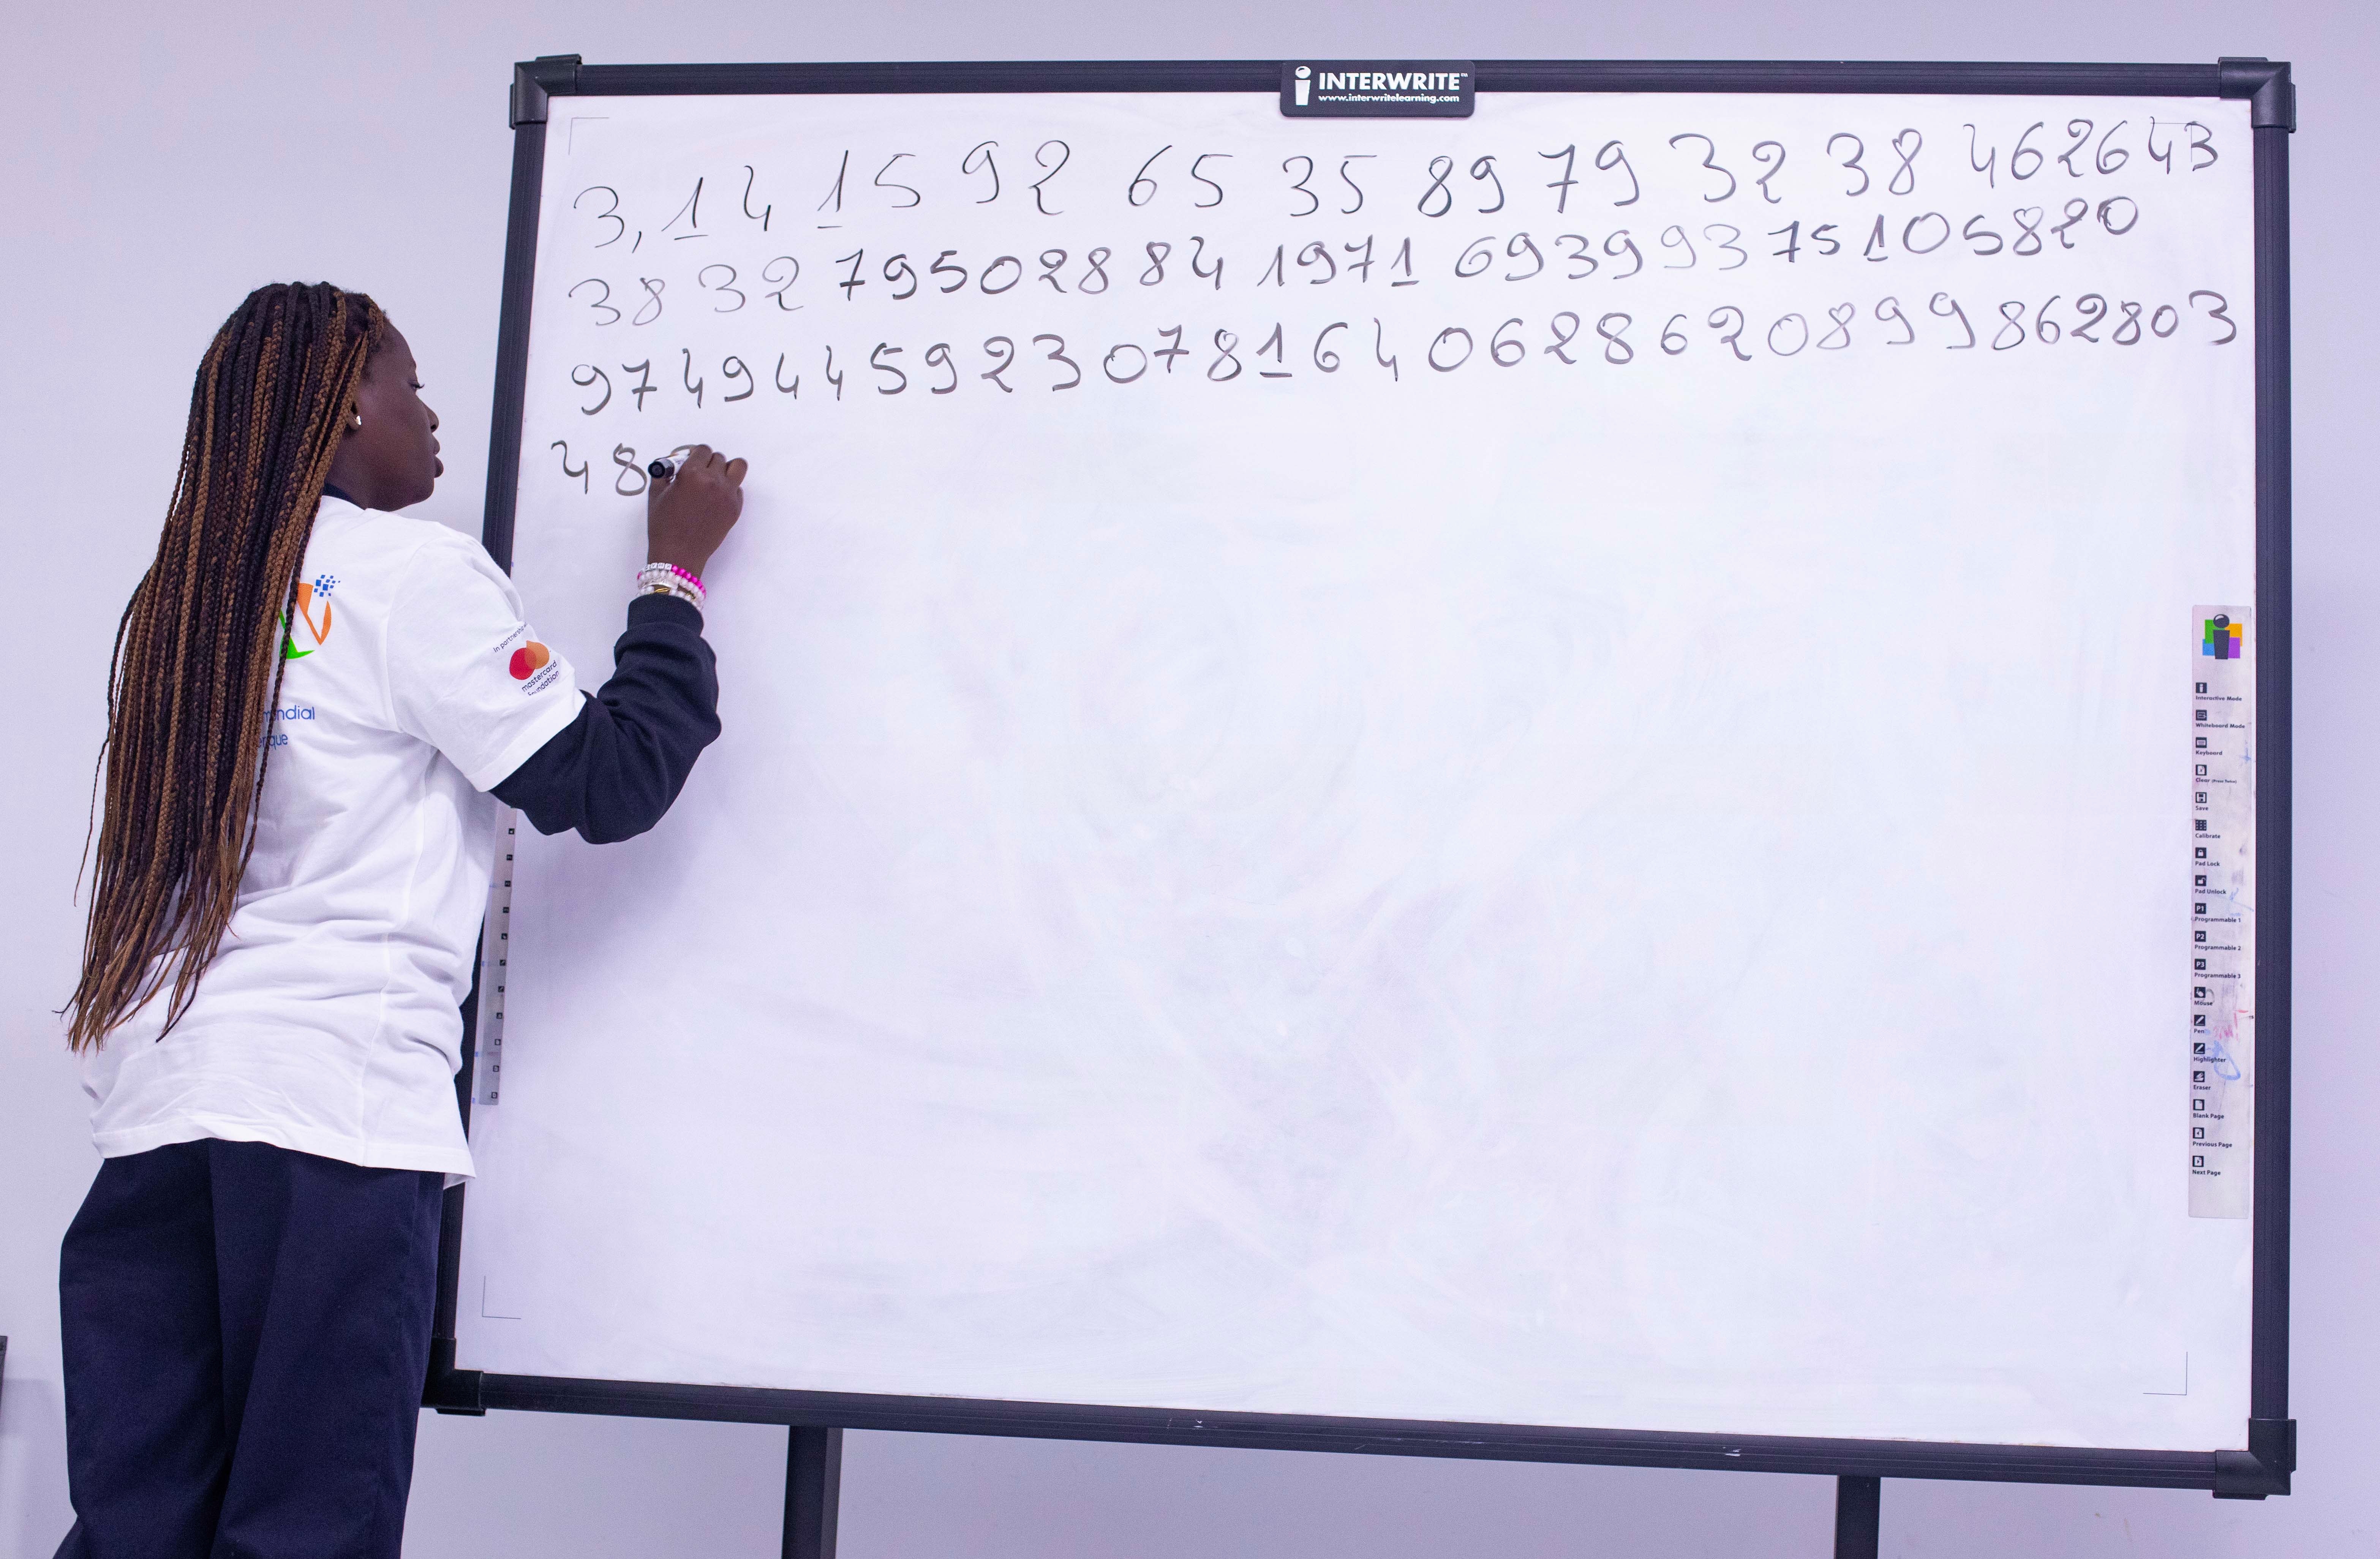 INTERWRITE™
www.interwritelearning.com
3,14 15 92 65 35 89 79 32 38 462643
38 32 795028 84 1971 693993 75105820
974944592307816406286208998 62803
48
In partnership
mastercard
foundation
Interactive Mode
Whiteboard Mode
Keyboard
Clear
Save
Calibrate
Pad Lock
Pad Unlock
P1
Programmable 1
P2
Programmable 2
P3
Programmable 3
Mouse
Pen
Highlighter
Eraser
Blank Page
Previous Page
Next Page